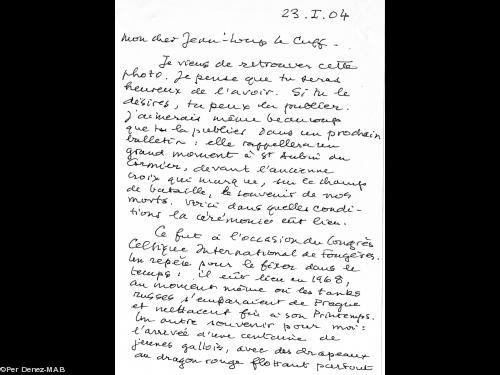 23.I.04
Mon cher Jean-Loup Le Cuff.
Je viens de retrouver cette
photo. Je pense que tu seras
heureux de l'avoir. Si tu le
désires, tu peux la publier.
J'aimerais même beaucoup
que tu la publies dans un prochain
bulletin : elle rappellera un
grand moment à St Aubin du
Cormier, devant l'ancienne
croix qui marque, sur le champ
de bataille, le souvenir de nos
morts. Voici dans quelles condi-
tions la cérémonie eût lieu.
Ce fut à l'occasion du Congrès
Celtique International de Fougères.
Un repère pour le fixer dans le
temps : il eût lieu en 1968,
au moment même où les tanks
russes s'emparaient de Prague
et mettaient fin à son Printemps.
Un autre souvenir pour moi :
l'arrivée d'une centaine de
jeunes gallois, avec des drapeaux
au dragon rouge flottant partout
©Per Denez-MAB